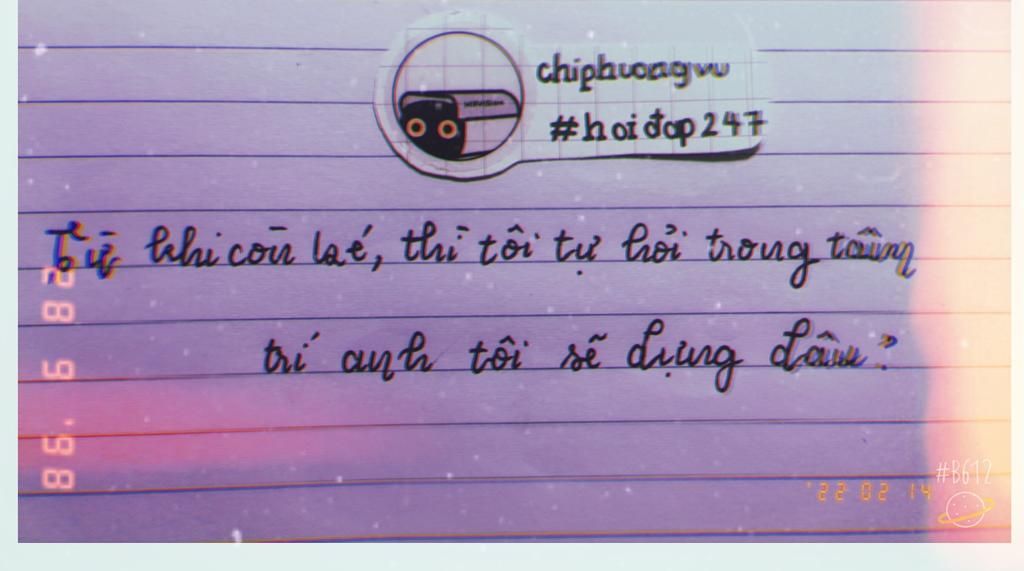 chiphuongvu
#hoiđap247
Từ khi còn bé, thì tôi tự hỏi trong tâm
trí anh tôi sẽ đựng đâu?
86. 6 82
'22 02 14
#B612